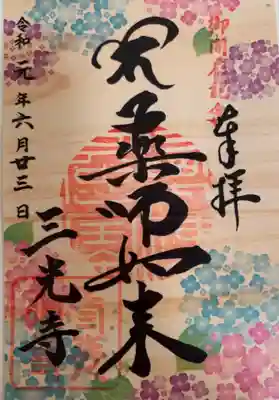 奉拝
薬師如来
三光寺
令和元年六月廿三日